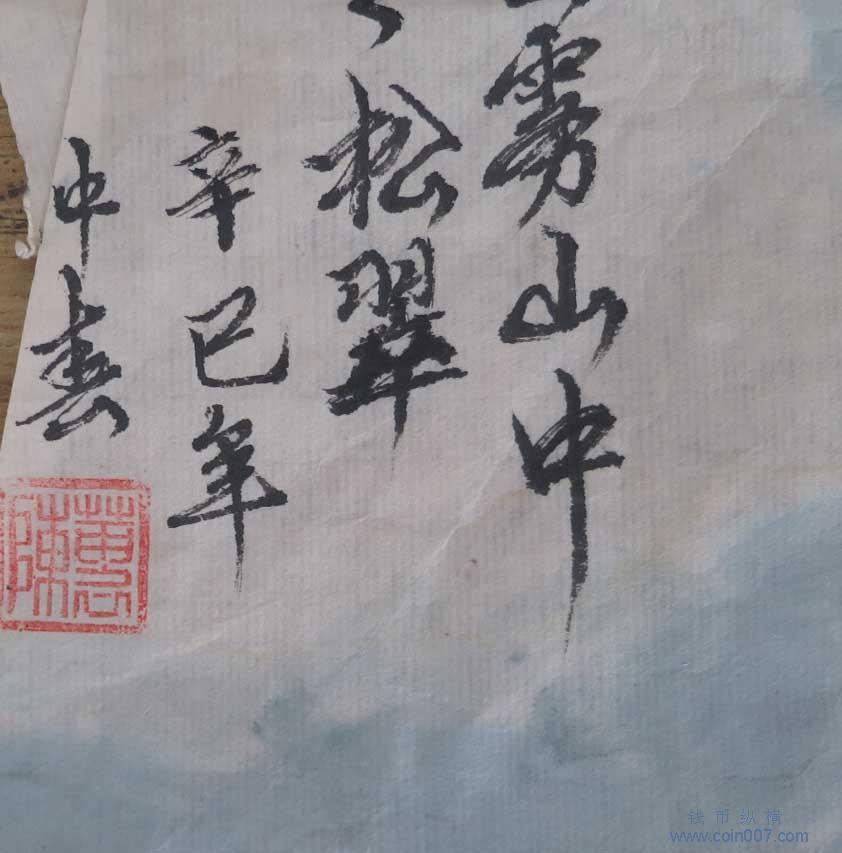 雾山中
松翠
辛巳年
中春
陳
钱币纵横
www.coin007.com